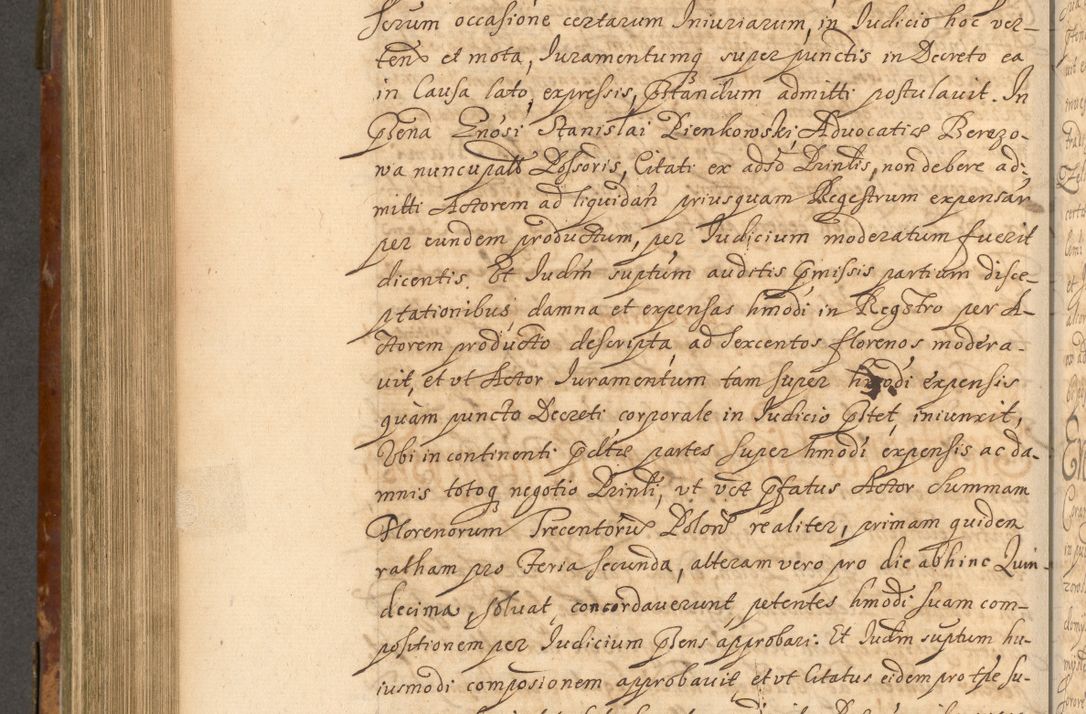 ferum occasione certarum Iniuriarum, in Iudicio hoc ver-
ten et mota, Iuramentumq super punctis in Decreto ea
in Causa lato, expressis, pstandum admitti postulavit. In
psena Enosi Stanislai Pienkowski, Advocatiæ Berezo-
wa nuncupatæ Possoris, Citati ex adso Prinlis, non debere ad-
mitti Actorem ad liquidan priusquam Regestrum expensar
per eundem productum, per Iudicium moderatum fuerit
dicentis. Et Iudm suptum auditis pmissis partium disce-
ptationibus, damna et expensas hmodi in Regstro per A-
ctorem producto descripta ad sexcentos florenos modera-
vit, et ut Actor Iuramentum tam super hmodi expensis
quam puncto Decreti corporale in Iudicio pstet, iniunxit,
Ubi in continenti pdtæ partes super hmodi expensis ac da-
mnis totoq negotio Prinli, ut vct pfatus Actor Summam
Florenorum Trecentorū Polon realiter, primam quidem
ratham pro Feria secunda, alteram vero pro die abhinc Quin-
decima, solvat, concordaverunt petentes hmodi suam com-
positionem per Iudicium psens approbari. Et Iudm suptum hu-
iusmodi composionem approbavit et ut Citatus eidem pro tple su-